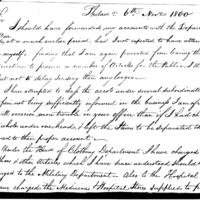 Philad. 6th Nov. 1800
I should have forwarded you account with the Depart
at a much earlier period, but I first expected to have atten
myself, finding that I am again prevented from leaving this
direction to procure a number of Articles for the Public, I th
but not to delay sending them any longer
I have attempted to keep the account under several subordinate
from not being sufficiently informed in the business I am of
will receive more trouble in your office than if I had ch
whole under one head, & left the Items to be separated
to their proper account
Under the Head of Clothing Department I have charged
these & other Articles which I have since understood should
charged to the Military Department. Also to the Hospital
may charged the Medicines & Hospital Stores supplied to